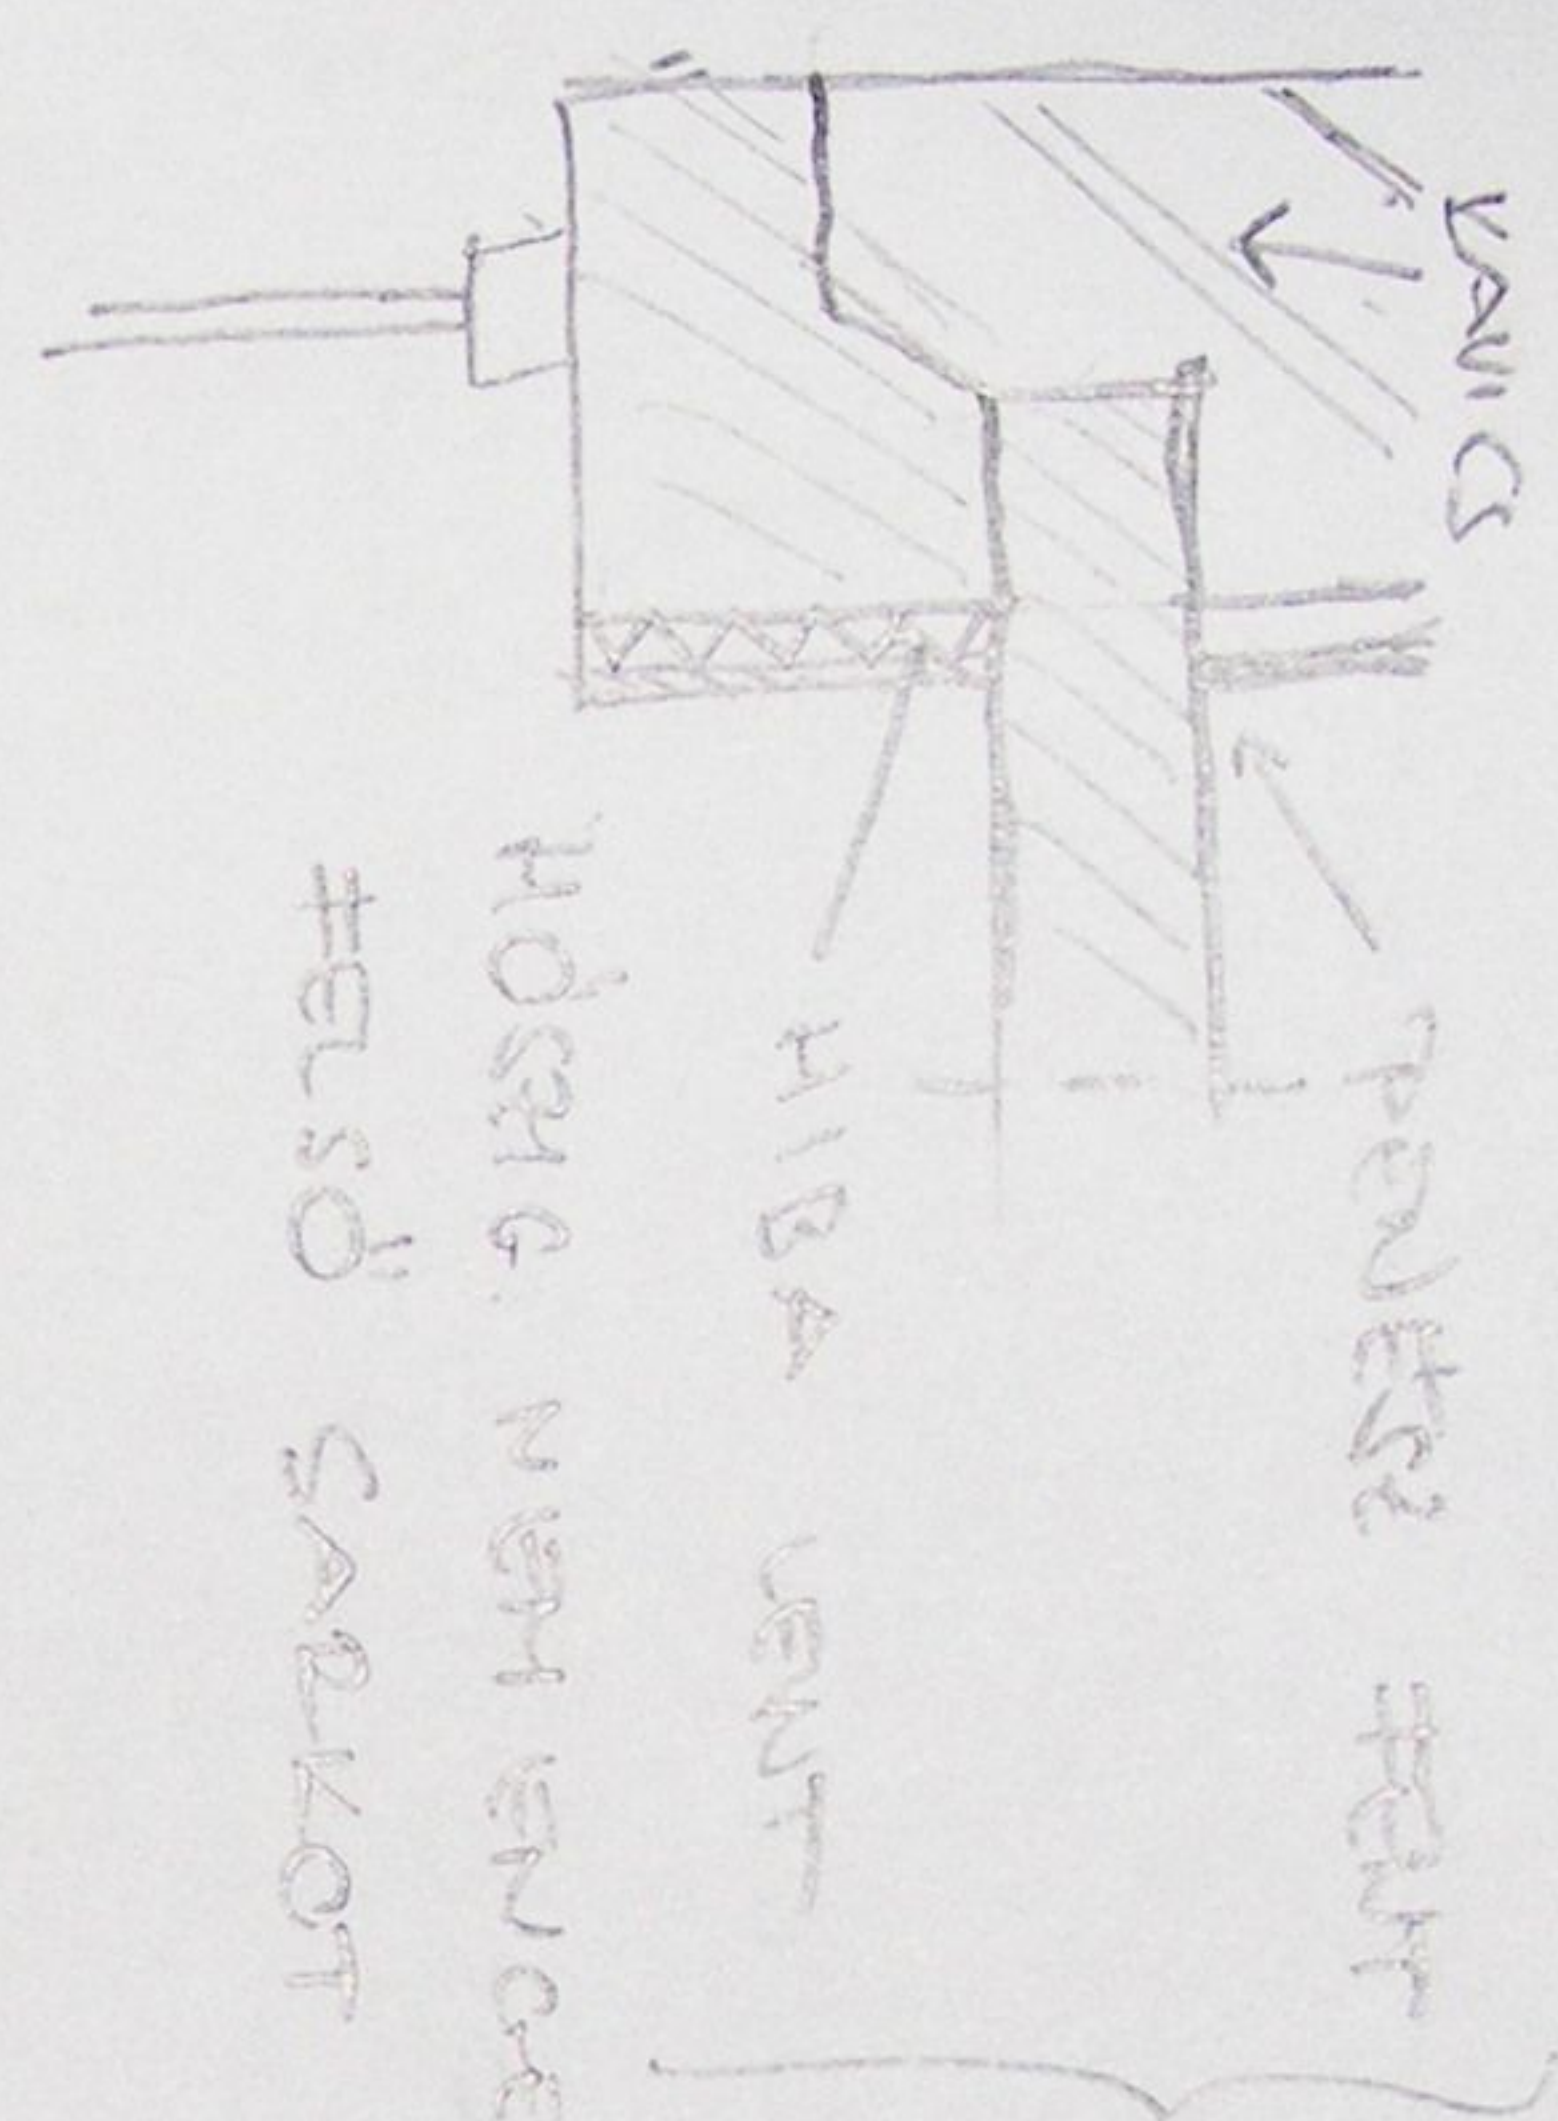 KAVICS
PENÉSZ FENT
HIBA LENT
HŐSZIG. NEM ENGE
FELSŐ SARKOT